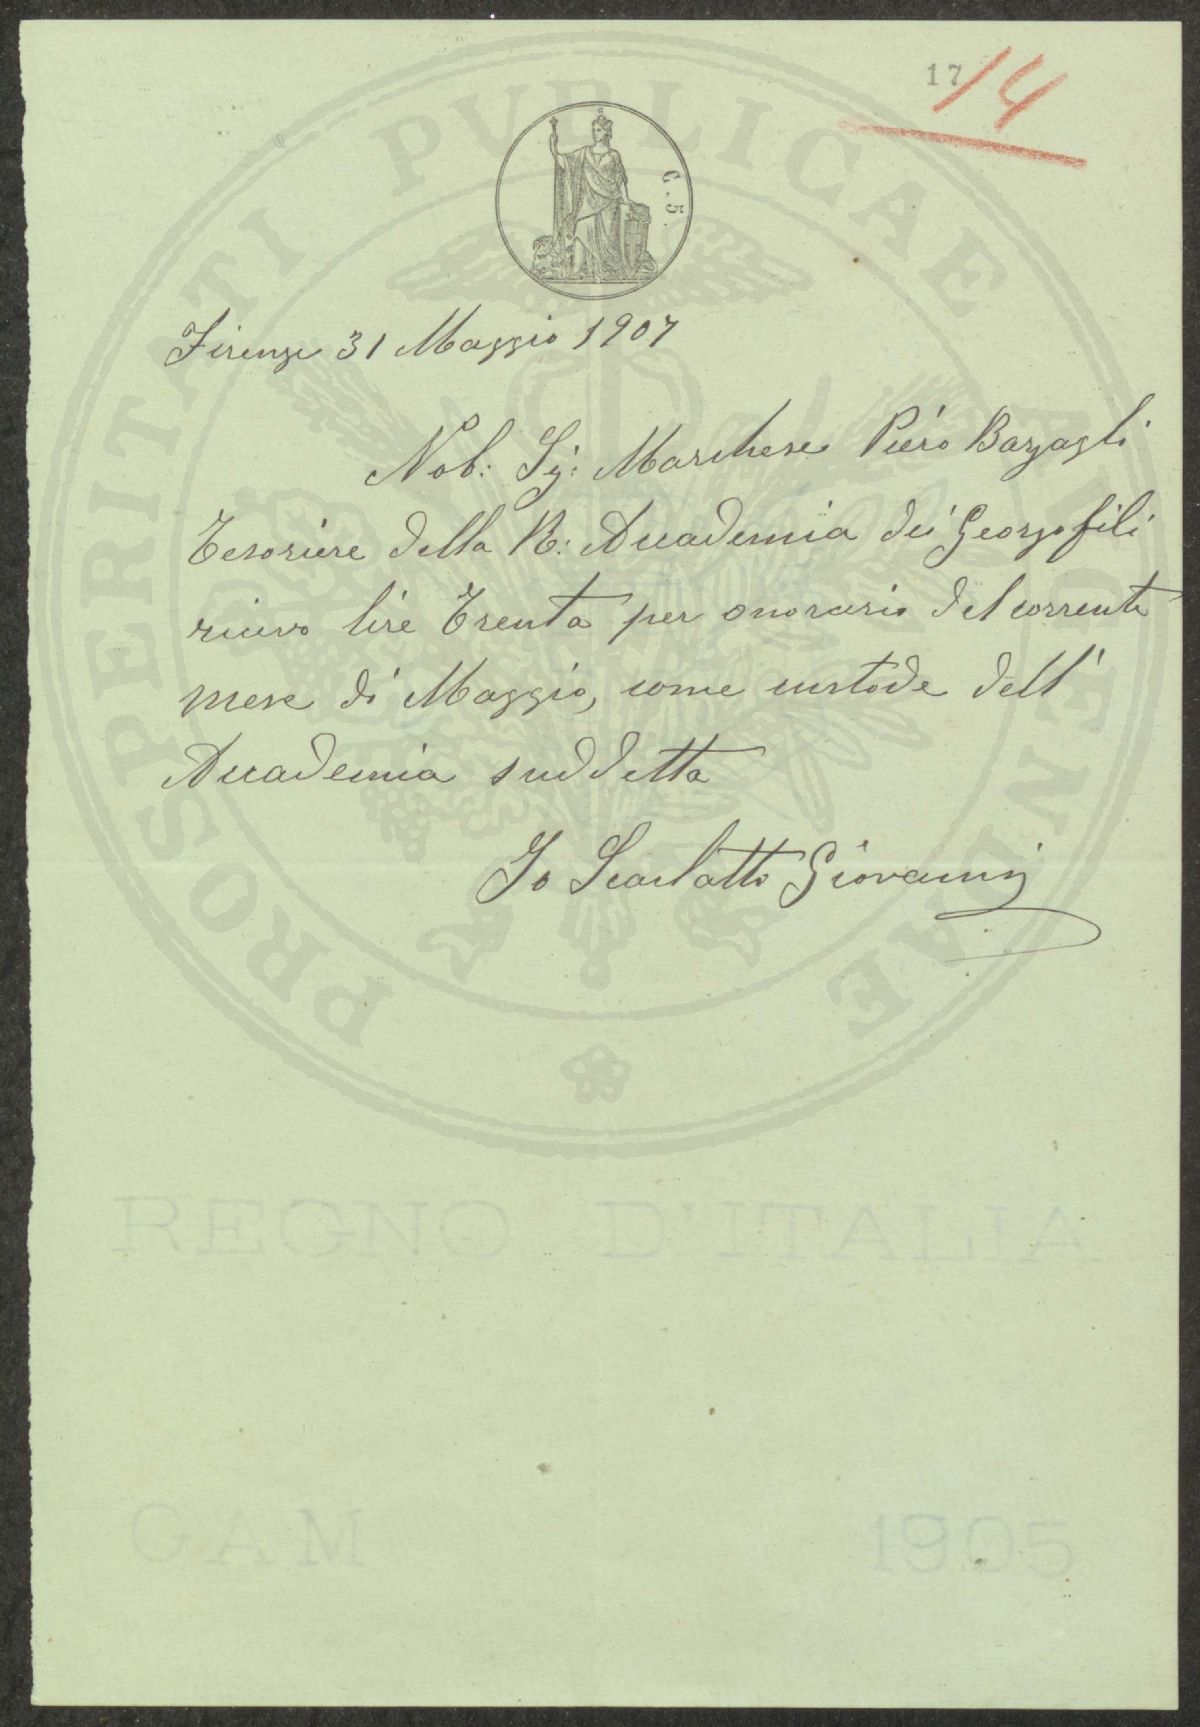 17
14
C. 5.
PROSPERITATI PUBLICAE AUGENDAE
Firenze 31 Maggio 1907
Nob: Sig: Marchese Piero Bargagli
Tesoriere della R: Accademia dei Georgofili
ricevo lire Trenta per onorario del corrente
mese di Maggio, come custode dell'
Accademia suddetta
Io Scarlatto Giovanni
REGNO D'ITALIA
GAM 1905